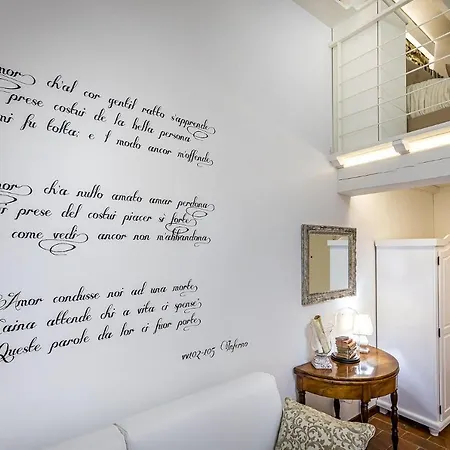 Amor ch'al cor gentil ratto s'apprende
prese costui de la bella persona
mi fu tolta; e l modo ancor m'offende
Amor ch'a nullo amato amar perdona
prese del costui piacer sì forte
come vedi ancor non m'abbandona
Amor condusse noi ad una morte
Caina attende chi a vita ci spense
Queste parole da lor ci fuor porte
vv102-105 Inferno